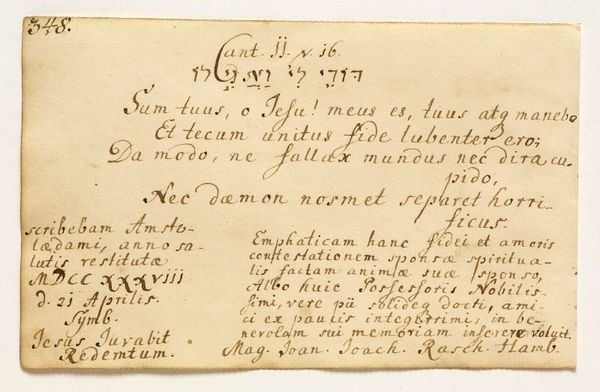 348.
Cant. II. v. 16.
דּוֹדִי לִי וַאֲנִי לוֹ
Sum tuus, o Jesu! meus es, tuus atq manebo
Et tecum unitus fide lubenter ero;
Da modo, ne fallax mundus nec dira cu-
pido,
Nec dæmon nosmet separet horri-
ficus.
scribebam Amsto-
lædami, anno sa-
lutis restitutæ
MDCC XXXVIII
d. 21 Aprilis.
Symb.
Jesus Iuvabit
Redemtum.
Emphaticam hanc fidei et amoris
contestationem sponsæ spiritua-
lis factam animæ suæ sponso,
Albo huic Possessoris Nobilis-
simi, vere pii solideq docti, ami-
ci ex paucis integerrimi, in be-
nevolam sui memoriam inserere voluit.
Mag. Joan. Joach. Rasch. Hamb.